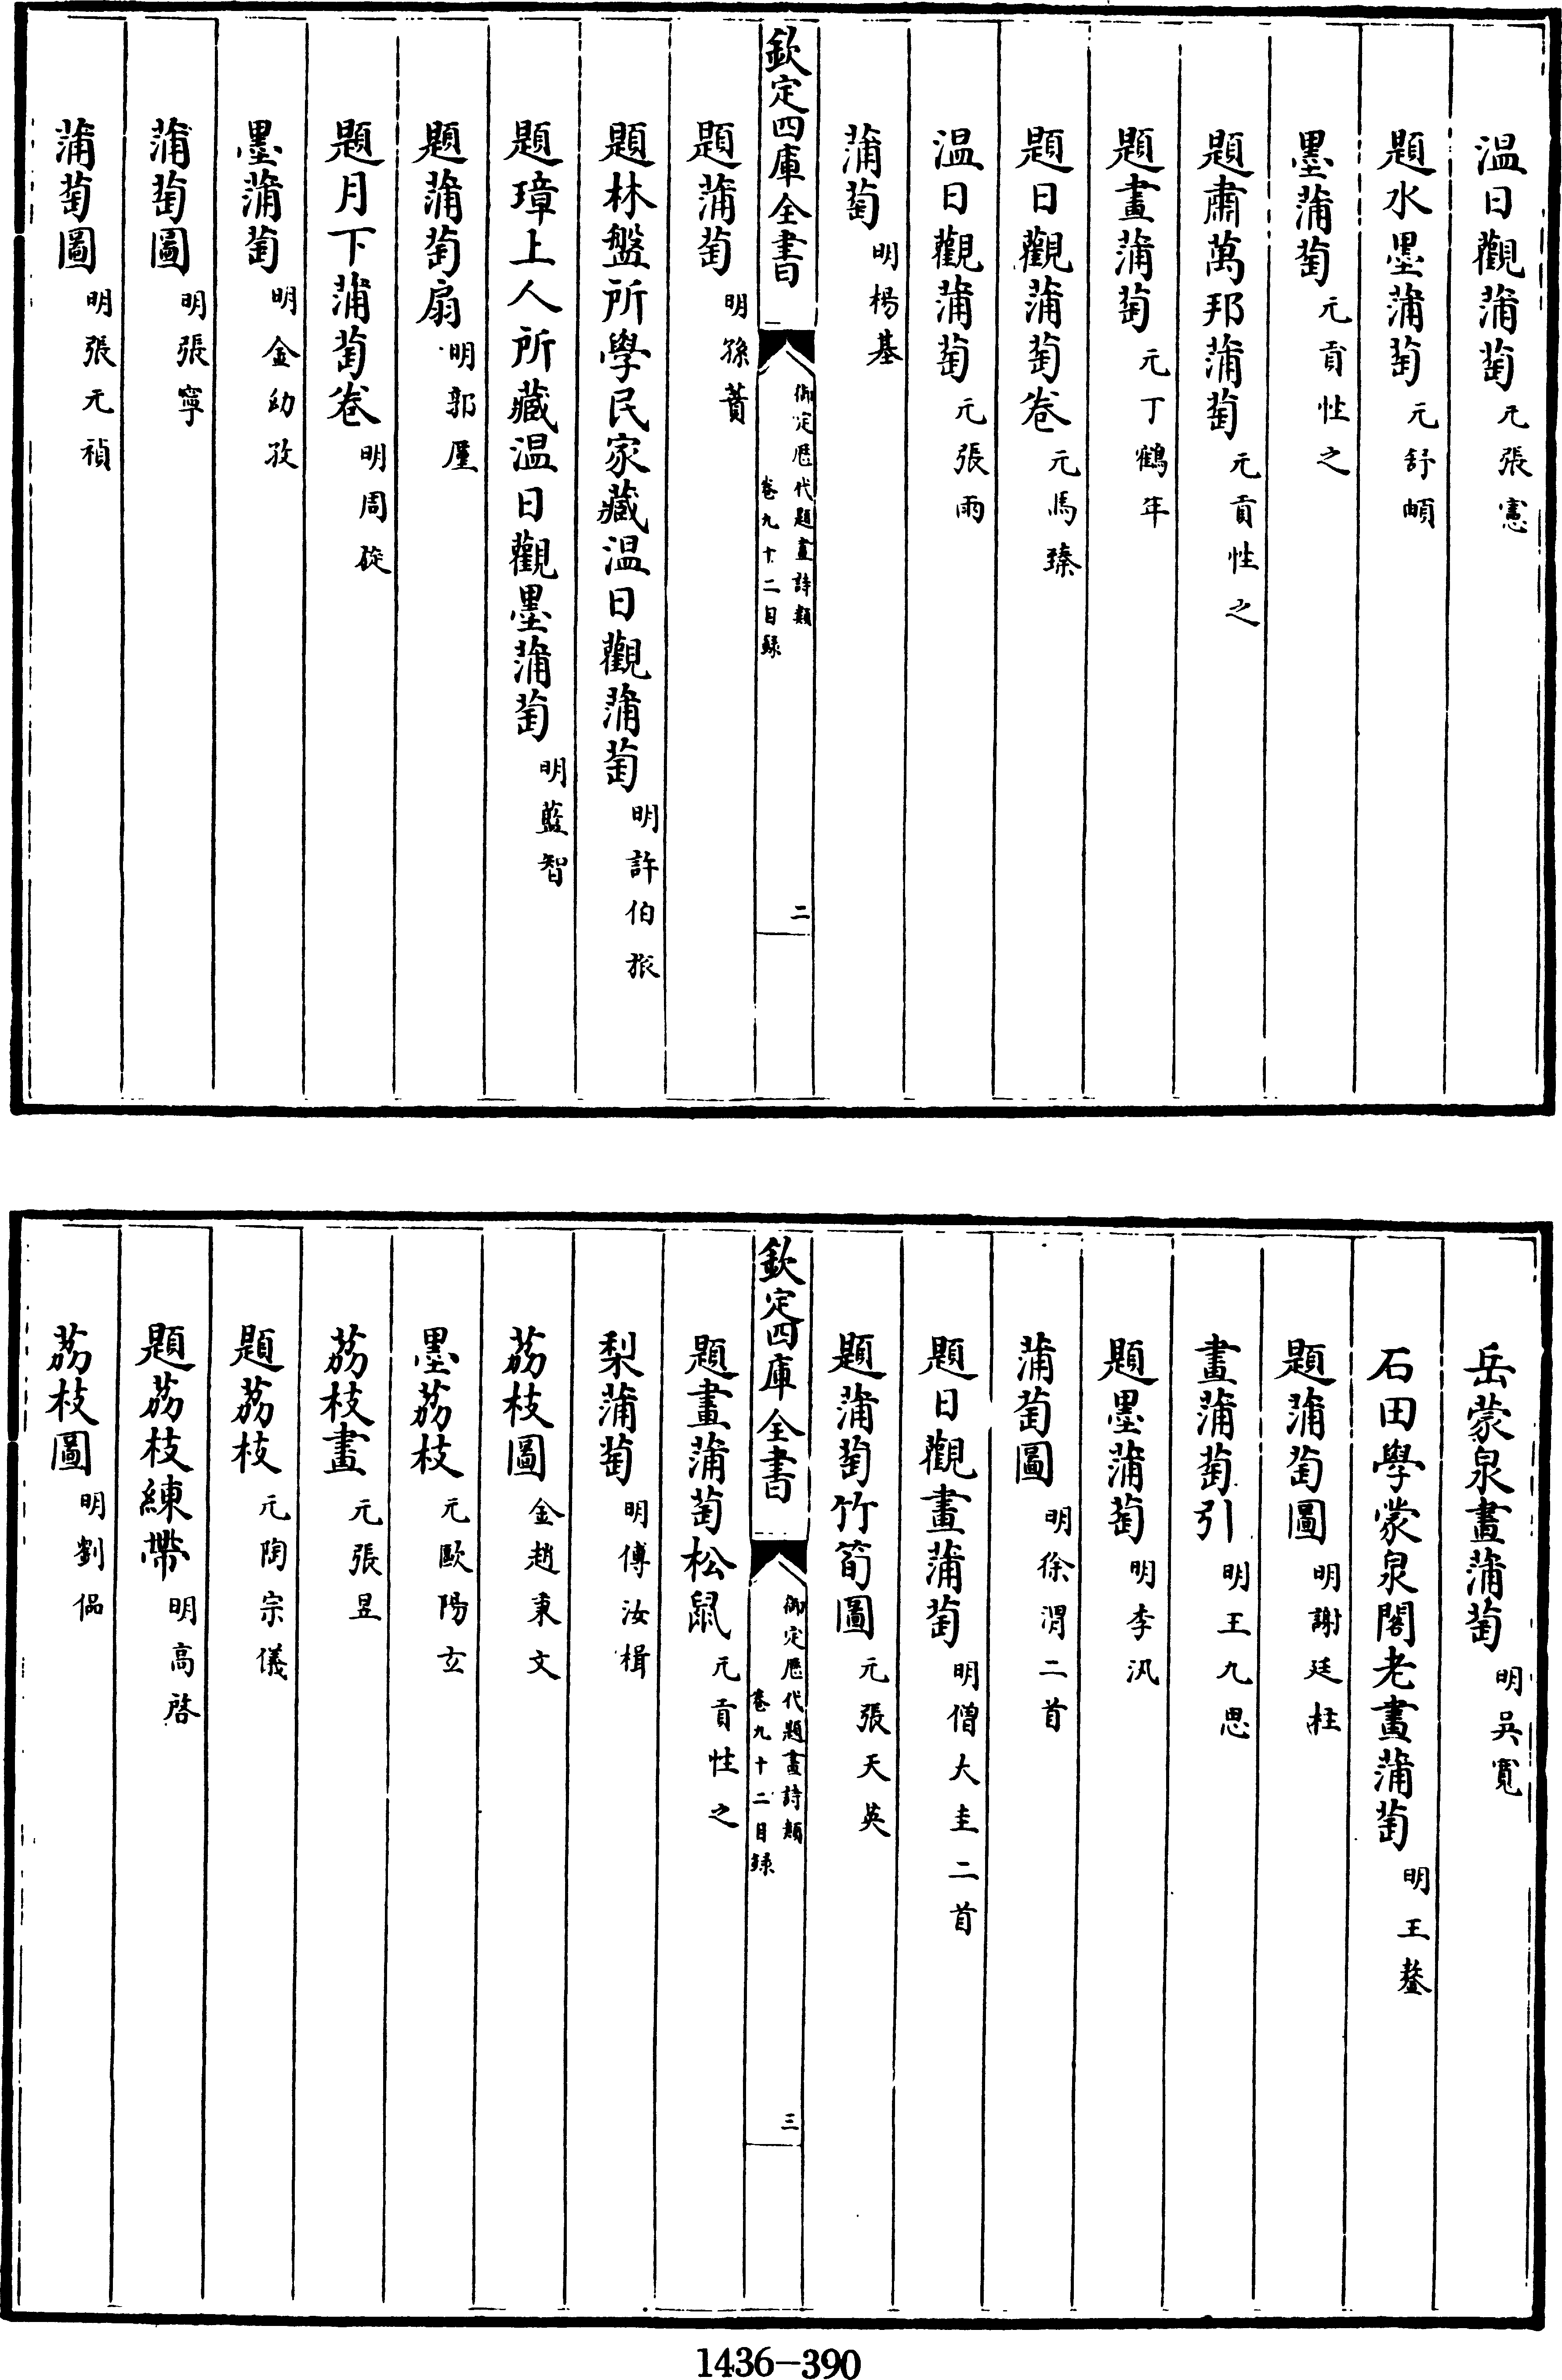 温日觀蒲萄元張憲
題水墨蒲萄元舒頔
墨蒲萄元貢性之
題肅萬邦蒲萄元貢性之
題畫蒲萄元丁鶴年
題日觀蒲萄卷元馬臻
温日觀蒲萄元張雨
蒲萄明楊基
欽定四庫全書
御定歷代題畫詩類
卷九十二目録
二
題蒲萄明孫蕡
題林盤所學民家藏温日觀蒲萄明許伯旅
題璋上人所藏温日觀墨蒲萄明藍智
題蒲萄扇明郭厪
題月下蒲萄卷明周旋
墨蒲萄明金幼孜
蒲萄圖明張寧
蒲萄圖明張元禎
岳蒙泉畫蒲萄明吳寬
石田學蒙泉閣老畫蒲萄明王鏊
題蒲萄圖明謝廷柱
畫蒲萄引明王九思
題墨蒲萄明李汎
蒲萄圖明徐渭二首
題日觀畫蒲萄明僧大圭二首
題蒲萄竹筍圖元張天英
欽定四庫全書
御定歷代題畫詩類
卷九十二目録
三
題畫蒲萄松鼠元貢性之
梨蒲萄明傅汝楫
荔枝圖金趙秉文
墨荔枝元歐陽玄
荔枝畫元張昱
題荔枝元陶宗儀
題荔枝練帶明高啓
荔枝圖明劉侣
1436-390